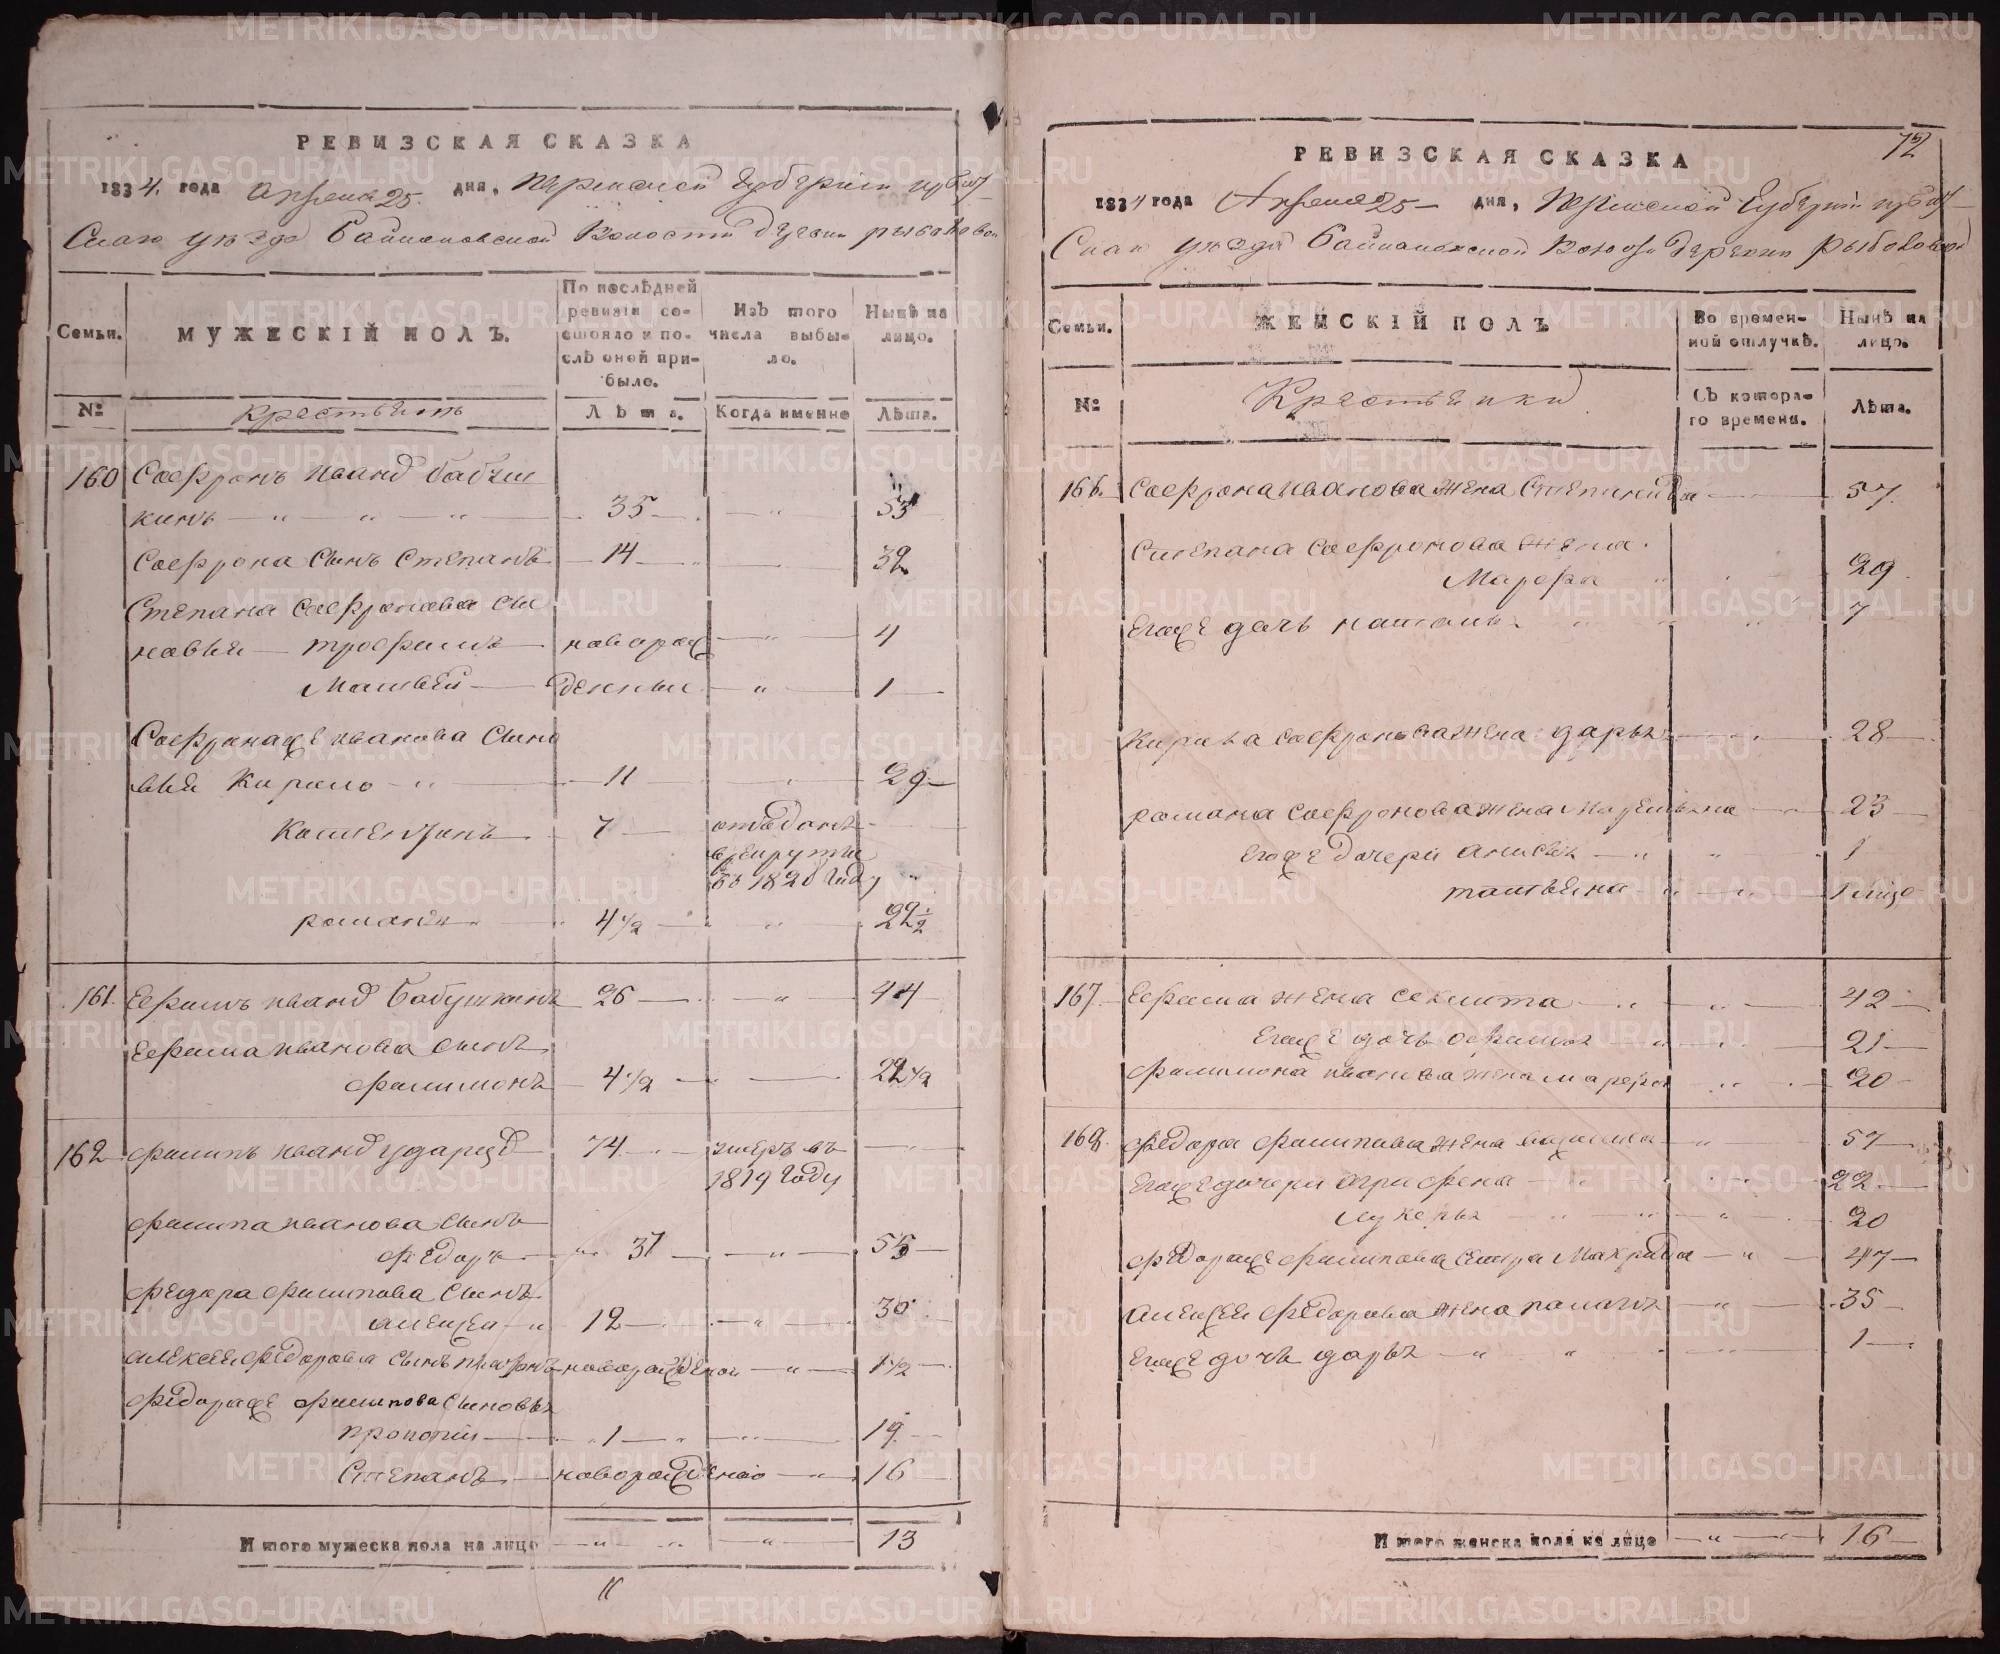 РЕВИЗСКАЯ СКАЗКА
1834. года Апреля 25. дня, Пермской Губернии Ирбит
скаго уезда Байкаловской Волости Деревни рыбаковой
Семьи. МУЖЕСКІЙ ПОЛЪ. По послѣдней ревизіи состояло и послѣ оной прибыло. Изъ того числа выбыло. Нынѣ на лицо.
№ Крестьянъ Лѣта. Когда именно Лѣта.
160 Софронъ иванд бабуш
кинъ — " — " — " 35 — " — 53
Софрона сынъ Степанъ — 14 — 32
Степана софронова сы
новья — трофимъ новорож — " — 4
Матвей — денные — " — 1
Софронаже иванова сыно
вья Кирило — " — 11 — " — 29
7 — отъданъ
врекруты
въ 1820 году
романъ " 4 1/2 — " 22 1/2
161. Ефимъ иванд бабушкинъ 26 — " — 44
Ефима иванова сынъ
филимонъ — 4 1/2 — 22 1/2
162 филипъ иванд ударцд 74 — умеръ въ
1819 году
филипа иванова сынъ
федоръ — " 37 — " — 55
Федора филипова сынъ
алексей — " 12 — " — 30
алексея федорова сынъ новорожденой — " — 1 1/2
федораже филипова сыновья
прокопій — " 1 — " — 19
Степанъ — новорожденаго — " — 16
Итого мужеска пола на лицо — " — " — 13
72
РЕВИЗСКАЯ СКАЗКА
1834 года Апреля 25 — дня, Пермской Губерніи ирбит
скаго уезда Байкаловской Волости деревни Рыбоковой
Семьи. ЖЕНСКІЙ ПОЛЪ Во временной отлучкѣ. Нынѣ на лицо.
№ Крестьянки Съ котораго времени. Лѣта.
166. Софрона иванова жена Степанида — 57
Степана софронова жена
Марфа " 29
Егоже дочь наталья " " 7
Кирила софронова жена дарья — 28
романа софронова жена — 23
Егоже дочери анисья — " 1
татьяна — " 1
167 Ефима жена секлита " " 42
Егоже дочь офимья " 21
филимона иванова жена марфа " 20
168. федора филипова жена — " 57
Егоже дочери огрифена — 22
лукерья — " 20
федораже филипова сестра Макрида — " — 47
алексея федорова жена палагея — " — 35
Егоже дочь дарья — " " 1
Итого женска пола на лицо — " — 16
METRIKI.GASO-URAL.RU